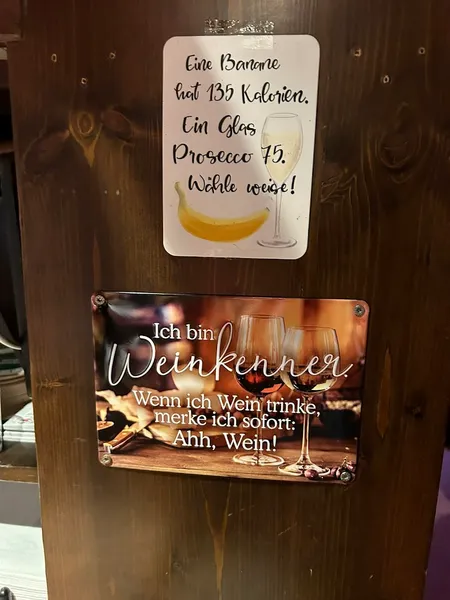 Eine Banane
hat 135 Kalorien.
Ein Glas
Prosecco 75.
Wähle weise!
Ich bin
Weinkenner.
Wenn ich Wein trinke,
merke ich sofort:
Ahh, Wein!